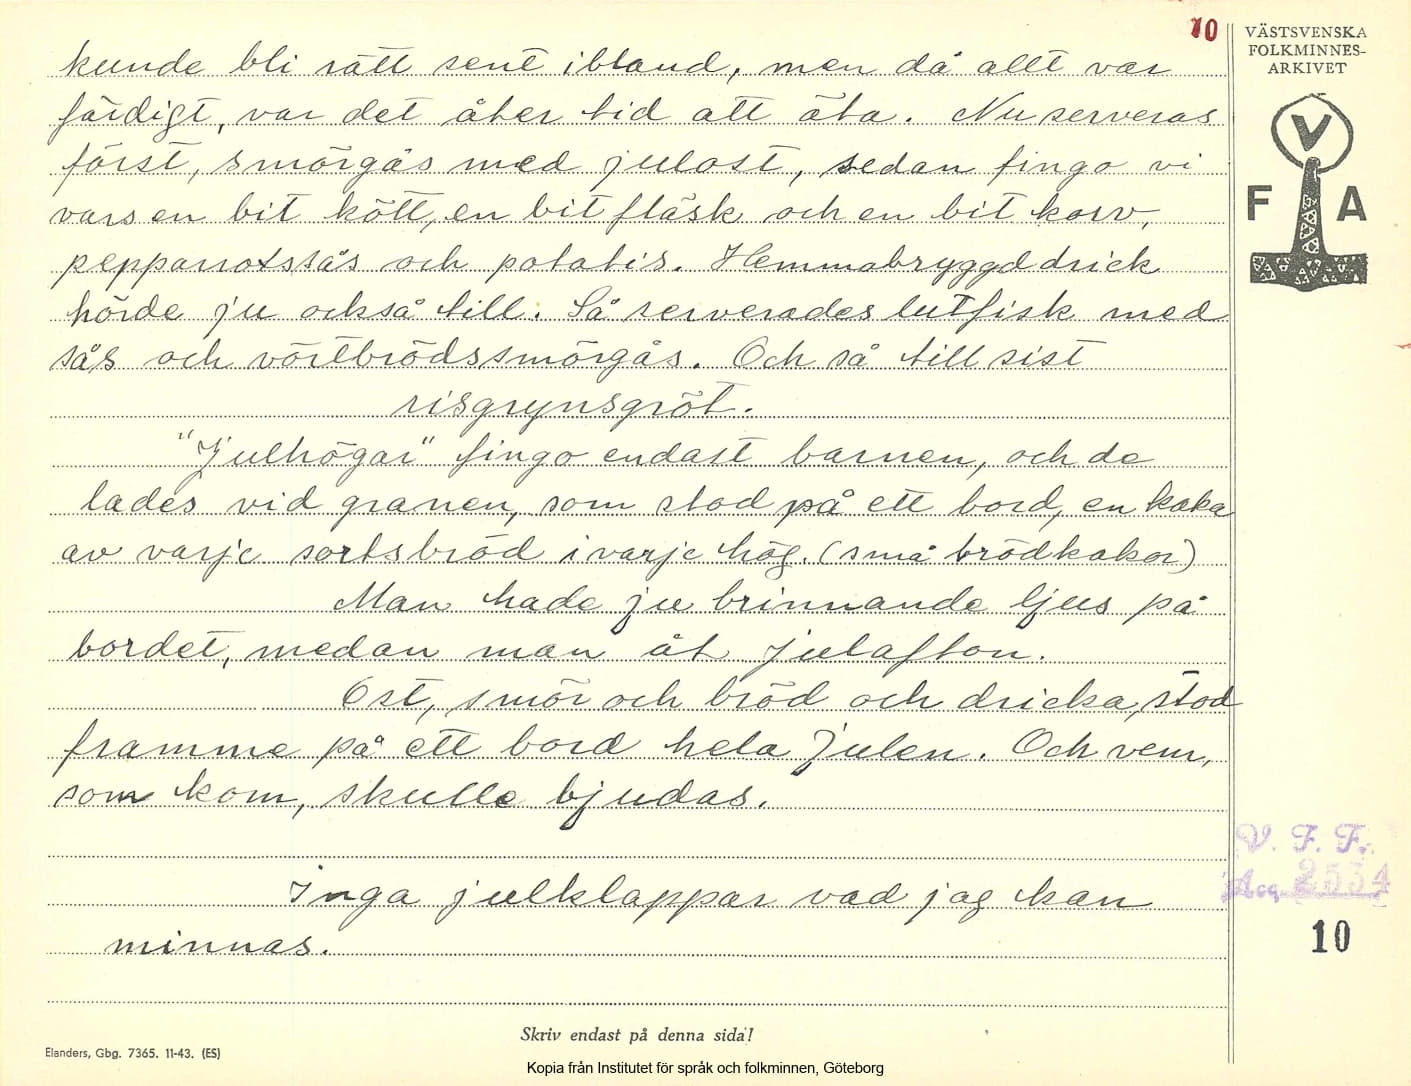 10
VÄSTSVENSKA
FOLKMINNES-
ARKIVET
V
F A
kunde bli rätt sent ibland, men då allt var
färdigt, var det åter tid att äta. Nu serveras
först, smörgås med julost, sedan fingo vi
vars en bit kött, en bit fläsk och en bit korv,
pepparrotssås och potatis. Hemmabryggd drick
hörde ju också till. Så serverades lutfisk med
sås och vörtbrödssmörgås. Och så till sist
risgrynsgröt.
"Julhögar" fingo endast barnen, och de
lades vid granen, som stod på ett bord, en kaka
av varje sorts bröd i varje hög. (små brödkakor)
Man hade ju brinnande ljus på
bordet, medan man åt julafton.
Ost, smör och bröd och dricka, stod
framme på ett bord hela Julen. Och vem,
som kom, skulle bjudas.
Inga julklappar vad jag kan
minnas.
V. F. F.
Acc. 2534
10
Skriv endast på denna sida!
Elanders, Gbg. 7365. 11-43. (ES)
Kopia från Institutet för språk och folkminnen, Göteborg